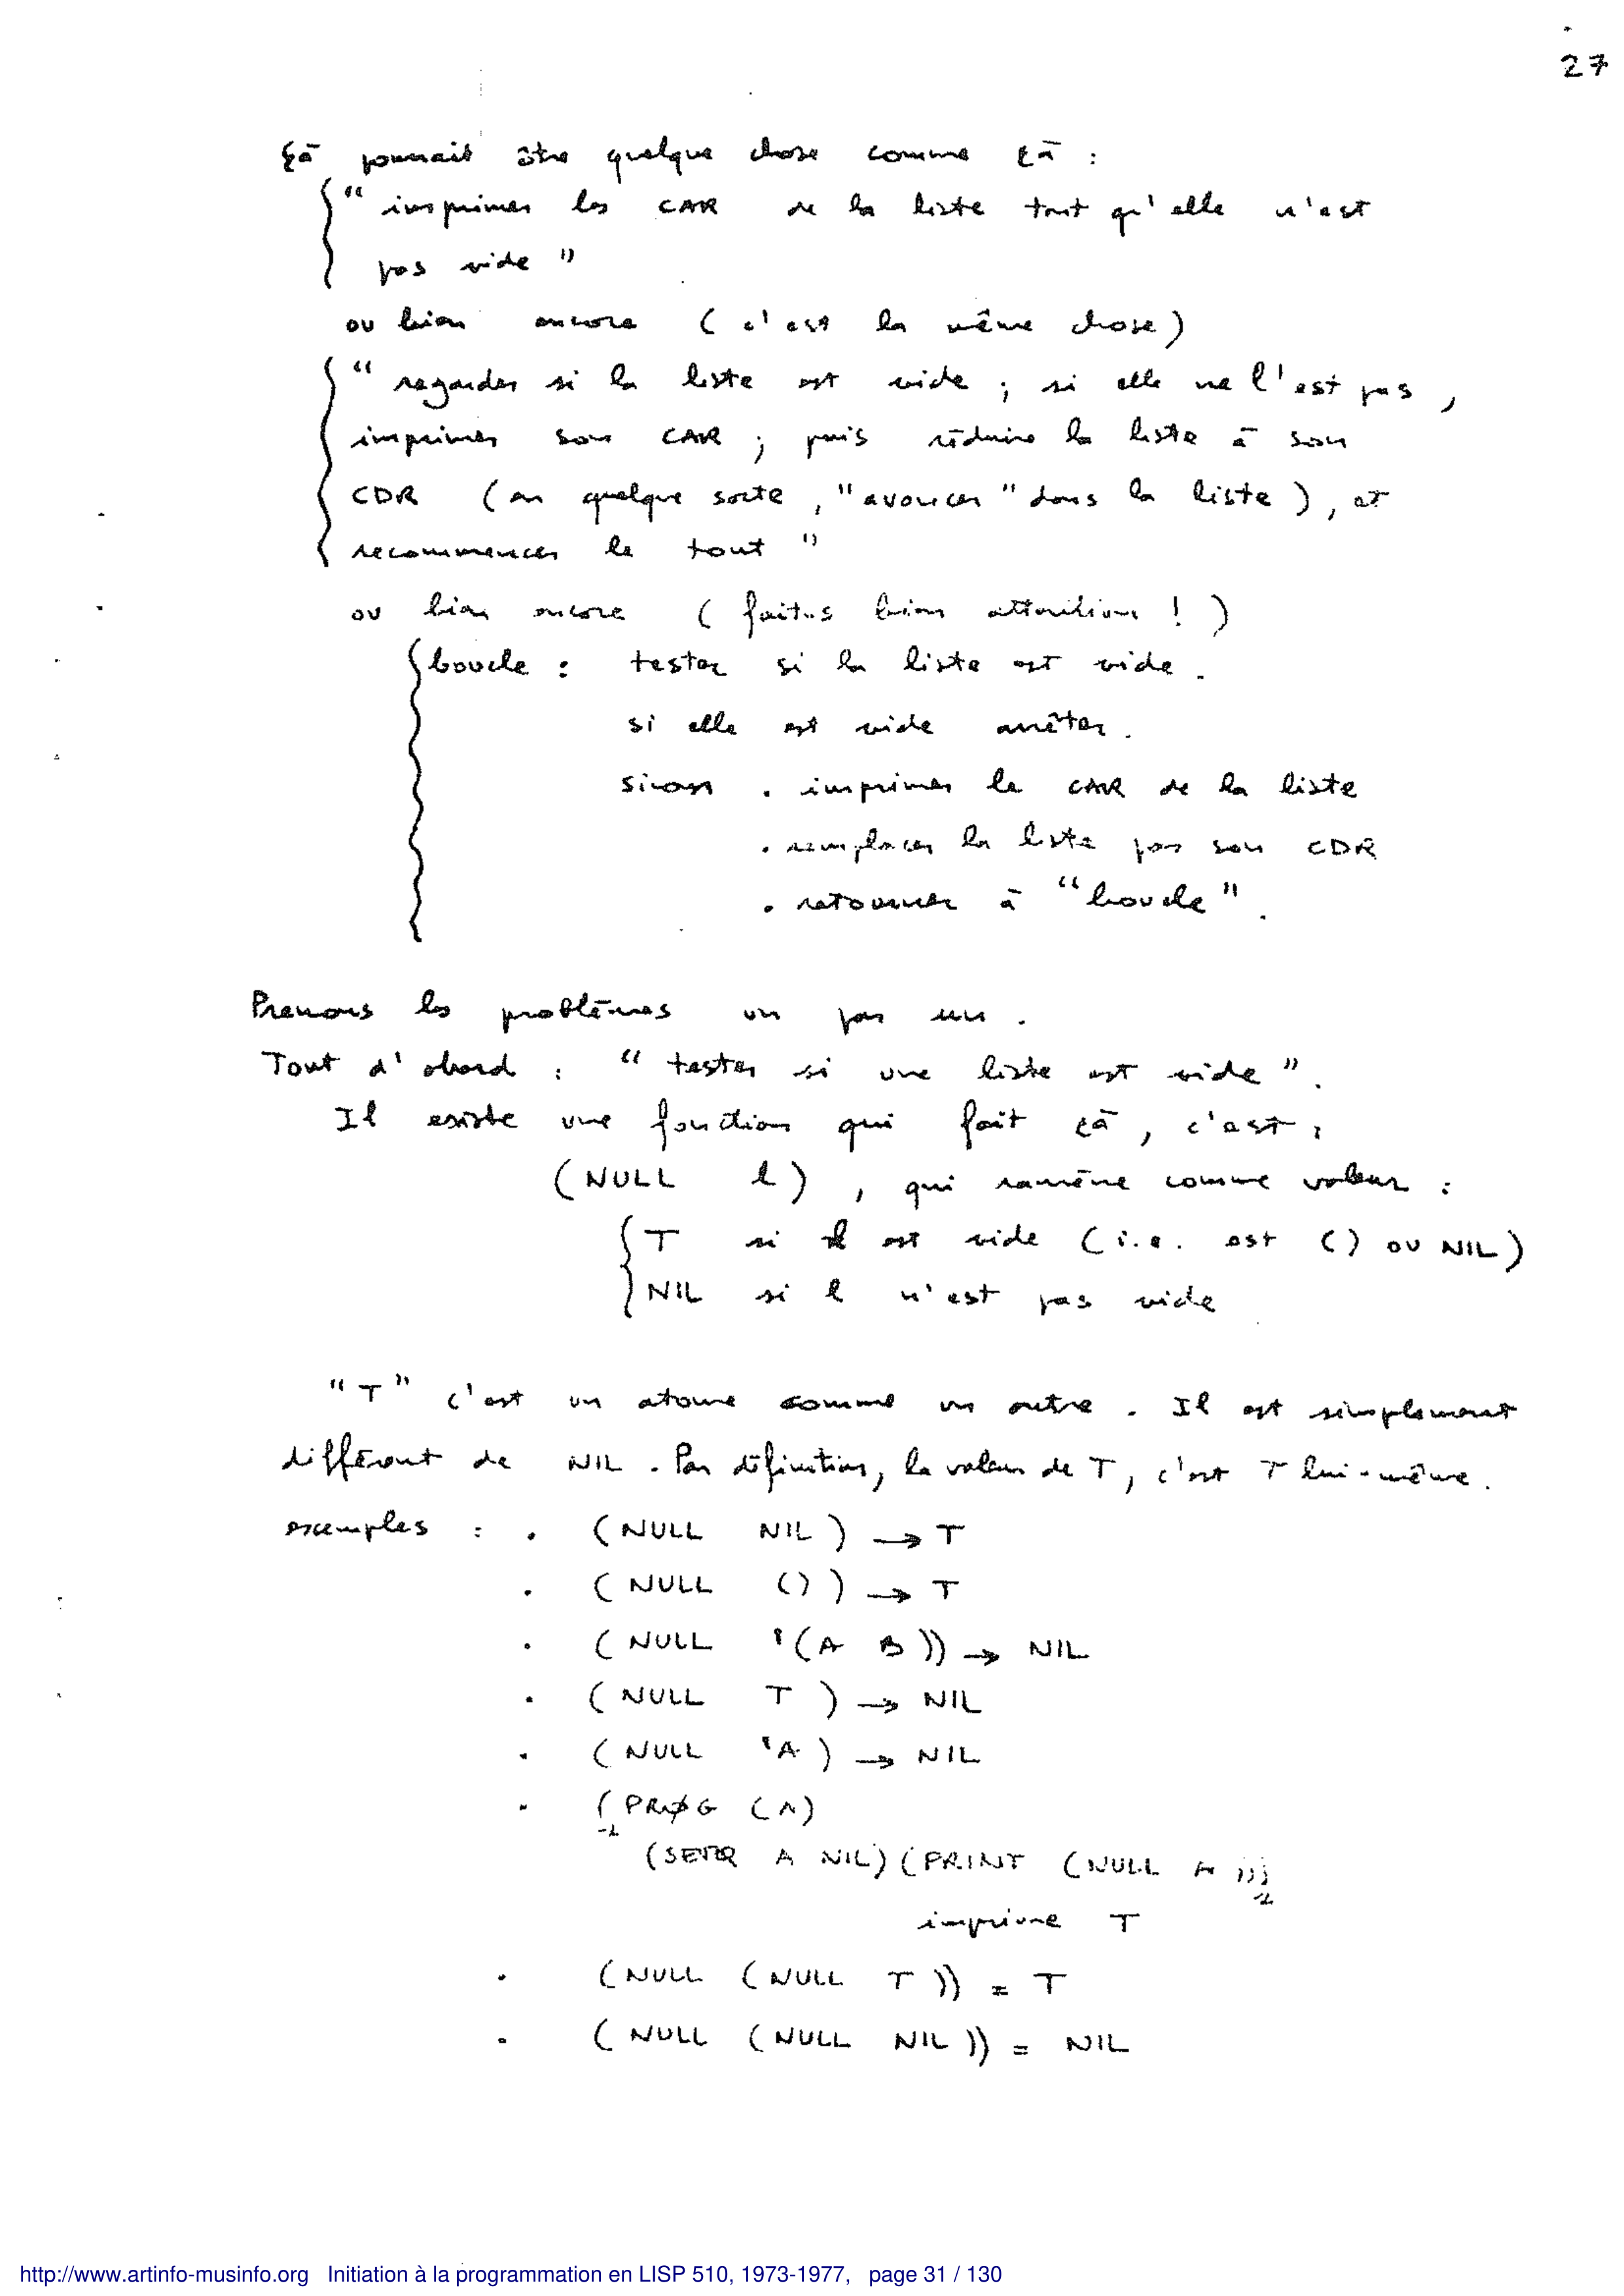 27
çà pourrait être quelque chose comme çà :
" imprimer les CAR de la liste tant qu'elle n'est
pas vide "
ou bien encore ( c'est la même chose )
" regarder si la liste est vide ; si elle ne l'est pas ,
imprimer son CAR ; puis réduire la liste à son
CDR ( en quelque sorte , " avancer " dans la liste ) , et
recommencer le tout "
ou bien encore ( faites bien attention ! )
boucle : tester si la liste est vide .
si elle est vide arrêter .
sinon . imprimer le CAR de la liste
. remplacer la liste par son CDR
. retourner à " boucle " .
Prenons les problèmes un par un .
Tout d'abord : " tester si une liste est vide " .
Il existe une fonction qui fait çà , c'est :
( NULL l ) , qui ramène comme valeur :
T si l est vide ( i.e. est () ou NIL )
NIL si l n'est pas vide
" T " c'est un atome comme un autre . Il est simplement
différent de NIL . Par définition , la valeur de T , c'est T lui-même .
exemples : . ( NULL NIL ) → T
. ( NULL () ) → T
. ( NULL '( A B )) → NIL
. ( NULL T ) → NIL
. ( NULL 'A ) → NIL
. ( PRØG ( A )
1
( SETQ A NIL ) ( PRINT ( NULL A )))
1
imprime T
. ( NULL ( NULL T )) = T
. ( NULL ( NULL NIL )) = NIL
http://www.artinfo-musinfo.org Initiation à la programmation en LISP 510, 1973-1977, page 31 / 130